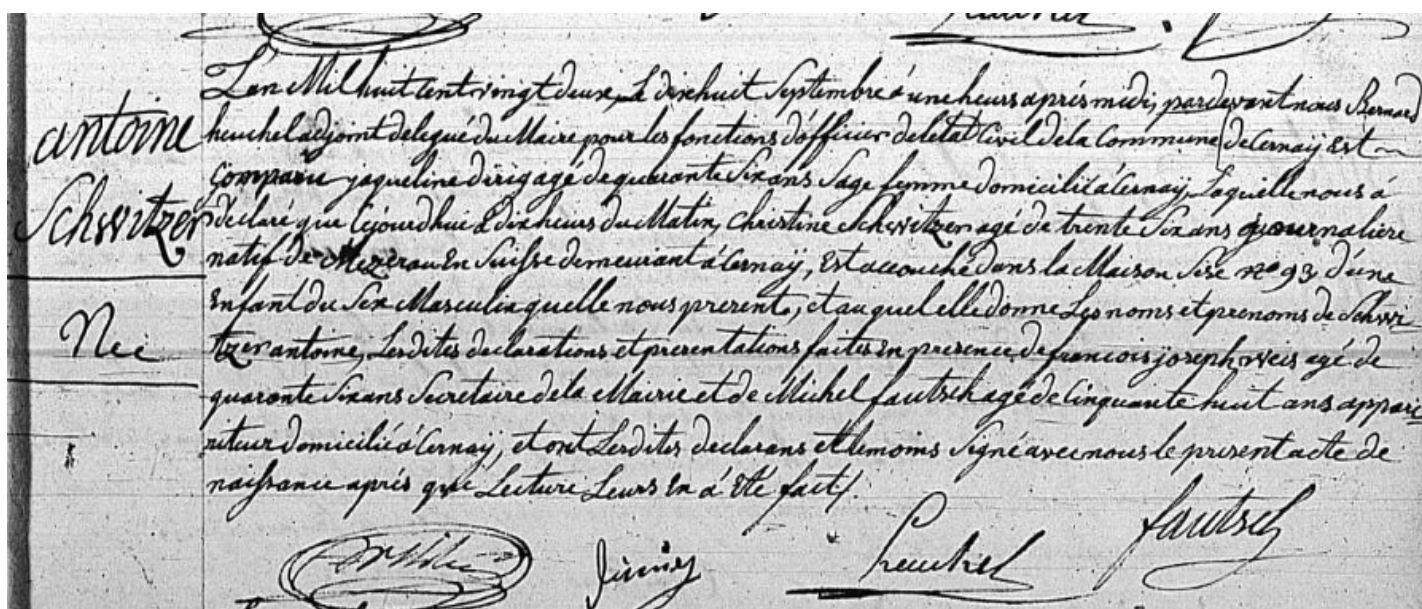 antoine
Schwitzer
Née
L'an Mil huit Cent vingt deux, le dix huit Septembre à une heurs après midi, pardevant nous Bernard
heuchel adjoint delegué du Maire pour les fonctions d'officier de l'etat Civil de la Commune de Cernaÿ Est
Comparu jaqueline dirig agé de quarante Six ans Sage femme domicilié à Cernaÿ, Laquelle nous à
déclaré que Cejourdhui à dix heurs du Matin, Christine Schwitzer agé de trente Six ans journaliere
natif de Mezerau En Suisse demeurant à Cernaÿ, Est accouché dans la Maison Sise no 93 d'une
Enfant du Sex Masculin quelle nous present, et auquel elle donne Les noms et prenoms de Schwi
tzer antoine, Lesdites declarations et presentations faites En presence de francois joseph weis agé de
quarante Six ans Secretaire de la Mairie et de Michel fautsch agé de Cinquante huit ans appari
riteur domicilié à Cernaÿ, et ont Lesdites declarans et temoins Signé avec nous le present acte de
naissance aprés que Lecture Leurs En à Eté fait /.
heuchel
fautsch